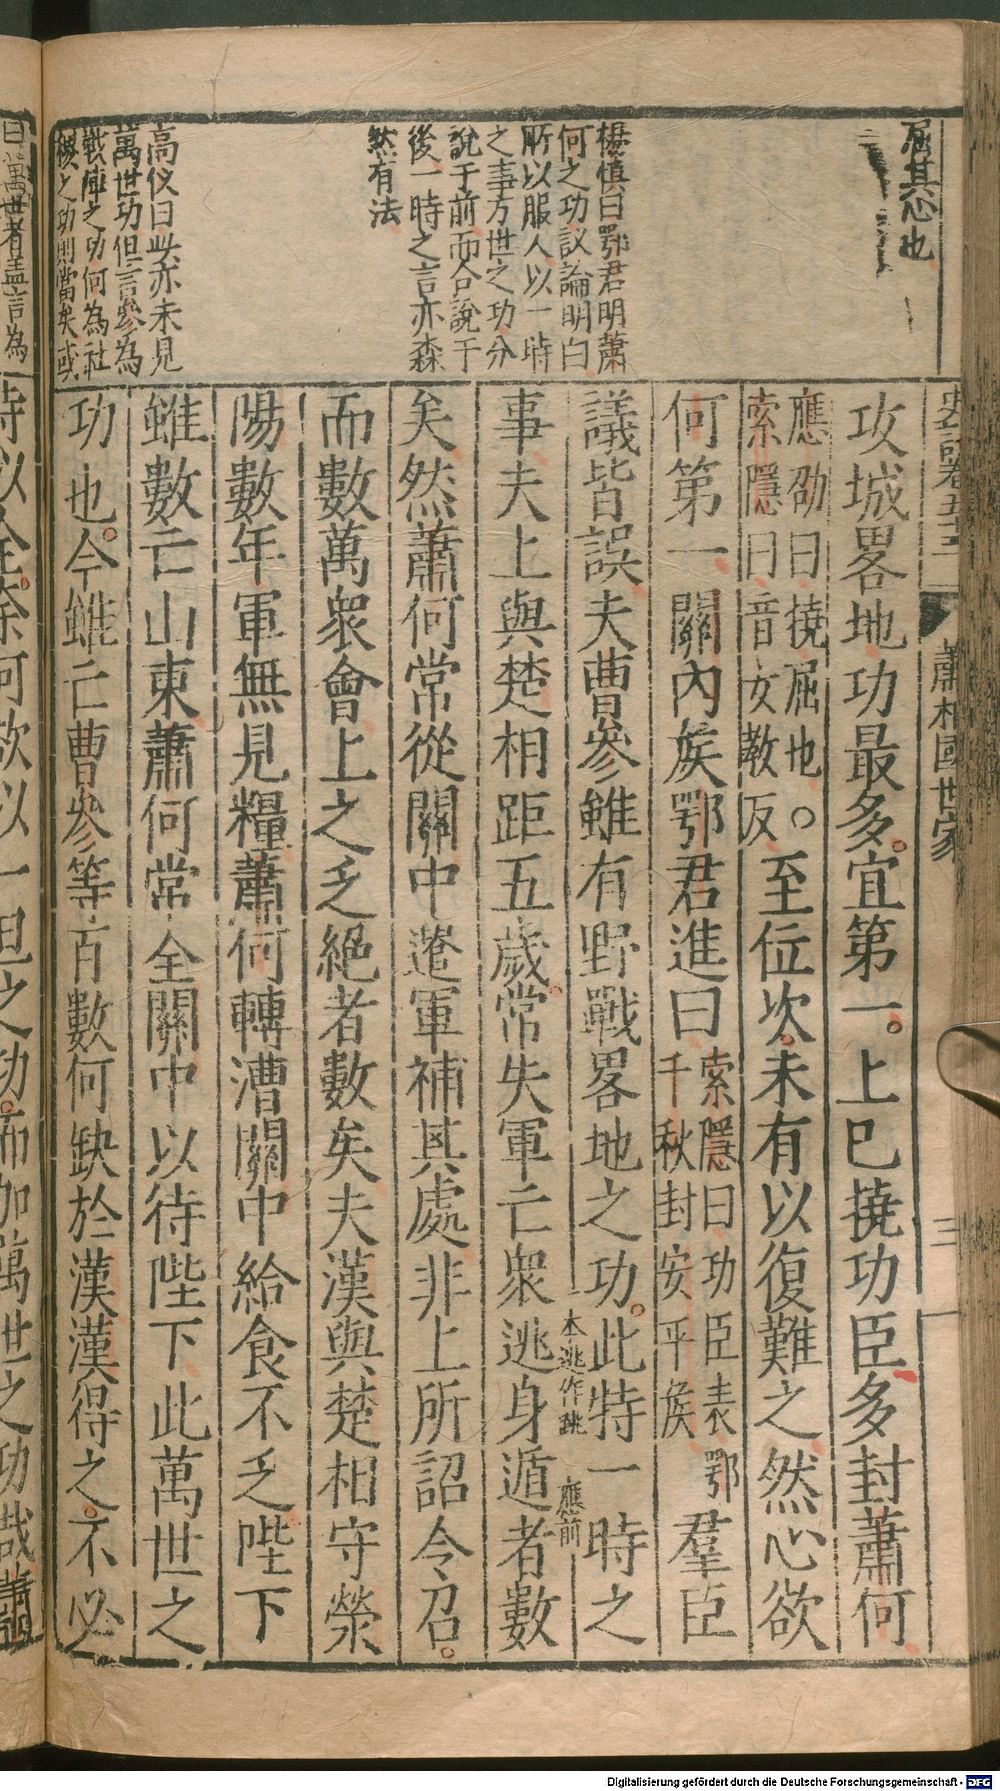 屈其心也
楊慎曰鄂君明蕭
何之功議論明白
所以服人以一時
之事方世之功分
說于前而合說于
後一時之言亦森
然有法
高儀曰此亦未見
萬世功但言參為
戰陣之功何為社
稷之功則當矣或
蕭相國世家
三
攻城畧地功最多宜第一上已撓功臣多封蕭何
應劭曰撓屈也○
索隱曰音女教反
至位次未有以復難之然心欲
何第一關內矦鄂君進曰
索隱曰功臣表鄂
千秋封安平矦
羣臣
議皆誤夫曹參雖有野戰畧地之功此特一時之
本逃作跳
應前
事夫上與楚相距五歲常失軍亡衆逃身遁者數
矣然蕭何常從關中遣軍補其處非上所詔令召
而數萬衆會上之乏絕者數矣夫漢與楚相守滎
陽數年軍無見糧蕭何轉漕關中給食不乏陛下
雖數亡山東蕭何常全關中以待陛下此萬世之
功也今雖亡曹參等百數何缺於漢漢得之不必
曰萬世者盖言為
待以全柰何欲以一旦之功而加萬世之功哉蕭
Digitalisierung gefördert durch die Deutsche Forschungsgemeinschaft - DFG